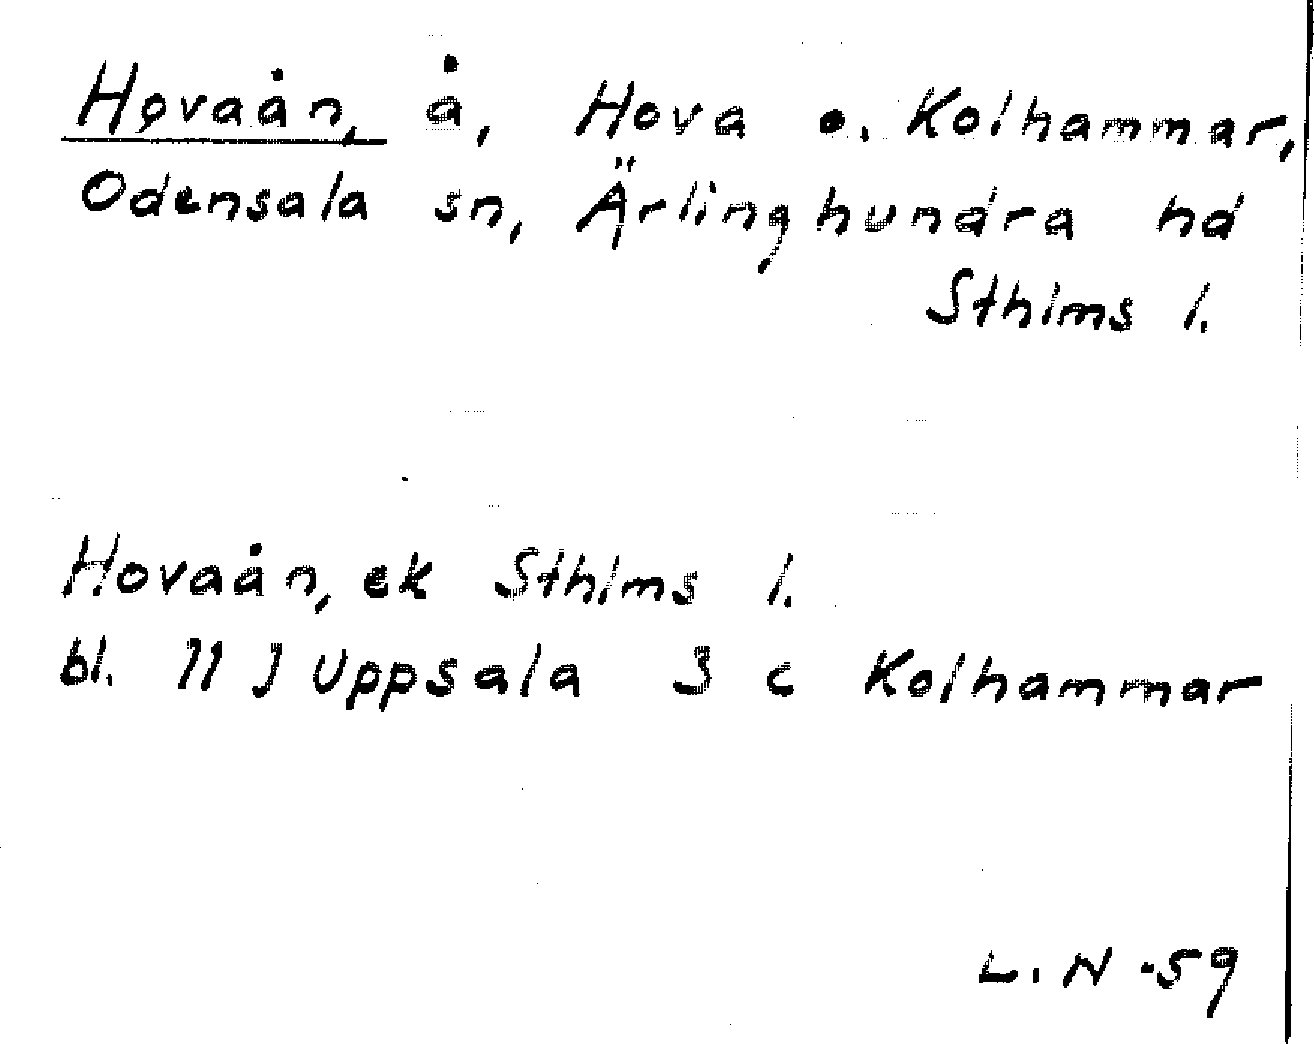 Hovaån, å, Hova o. Kolhammar,
Odensala sn, Ärlinghundra hd
Sthlms l.
Hovaån, ek Sthlms l.
bl. 11 J Uppsala 3 c Kolhammar
L. N -59